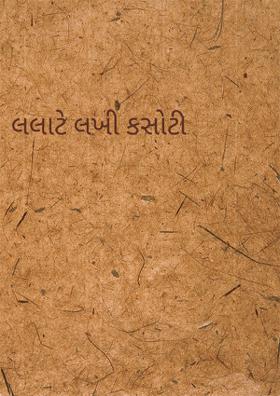 લલાટે લખી કસોટી